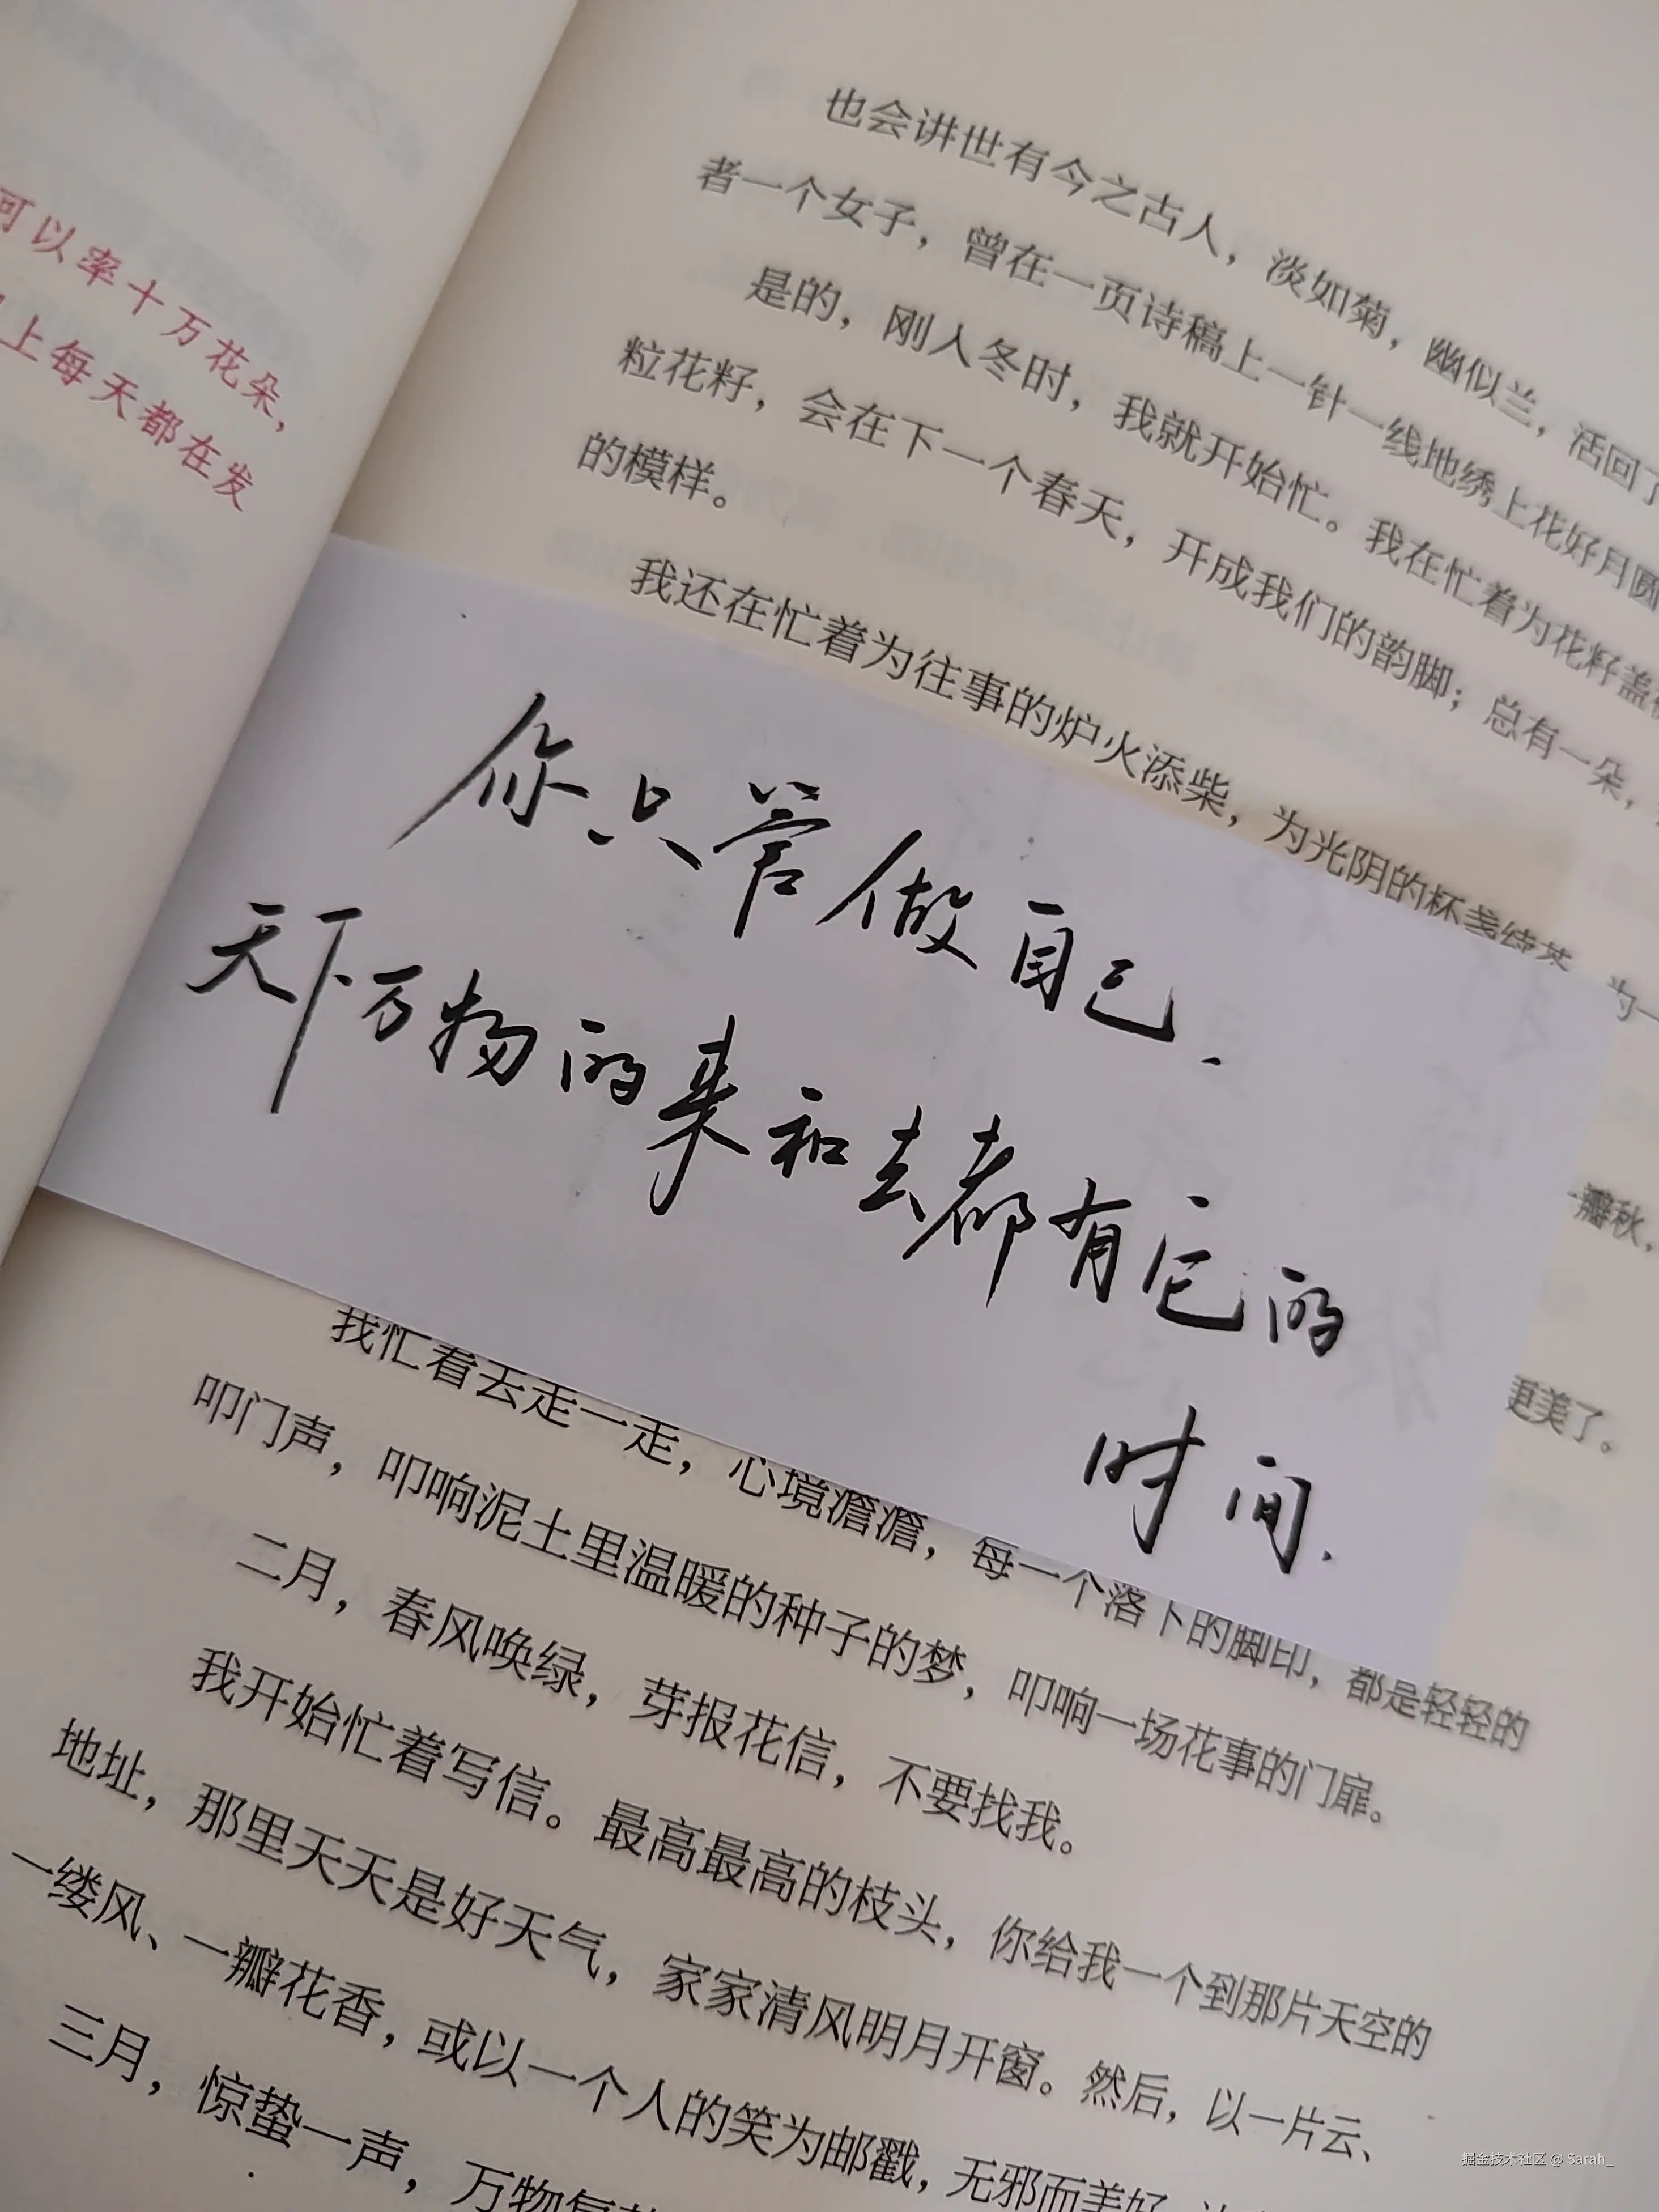 可以率十万花朵，
上每天都在发
也会讲世有今之古人，淡如菊，幽似兰，活回了
者一个女子，曾在一页诗稿上一针一线地绣上花好月圆
是的，刚入冬时，我就开始忙。我在忙着为花籽盖
粒花籽，会在下一个春天，开成我们的韵脚；总有一朵，
的模样。
我还在忙着为往事的炉火添柴，为光阴的杯盏续茶，为一
你只管做自己.
天下万物的来和去都有它的
时间.
一瓣秋，
更美了。
我忙着去走一走，心境澹澹，每一个落下的脚印，都是轻轻的
叩门声，叩响泥土里温暖的种子的梦，叩响一场花事的门扉。
二月，春风唤绿，芽报花信，不要找我。
我开始忙着写信。最高最高的枝头，你给我一个到那片天空的
地址，那里天天是好天气，家家清风明月开窗。然后，以一片云、
一缕风、一瓣花香，或以一个人的笑为邮戳，无邪而美好
三月，惊蛰一声，万物复
掘金技术社区 @ Sarah_